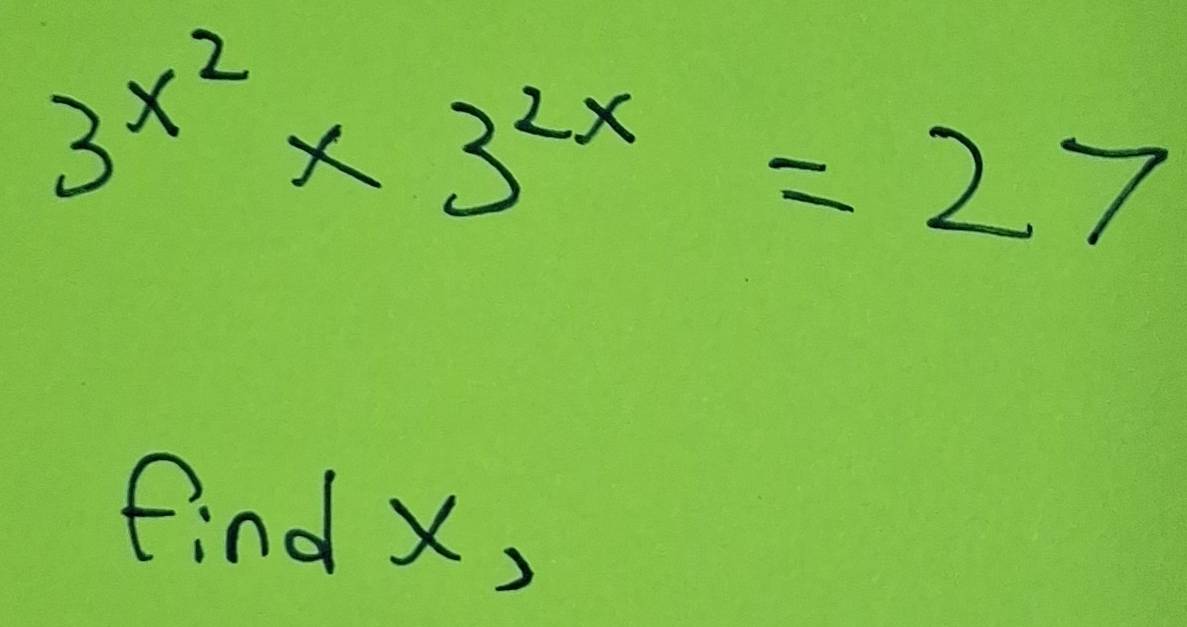 3^{x^2} × 3^{2x} = 27
find x,